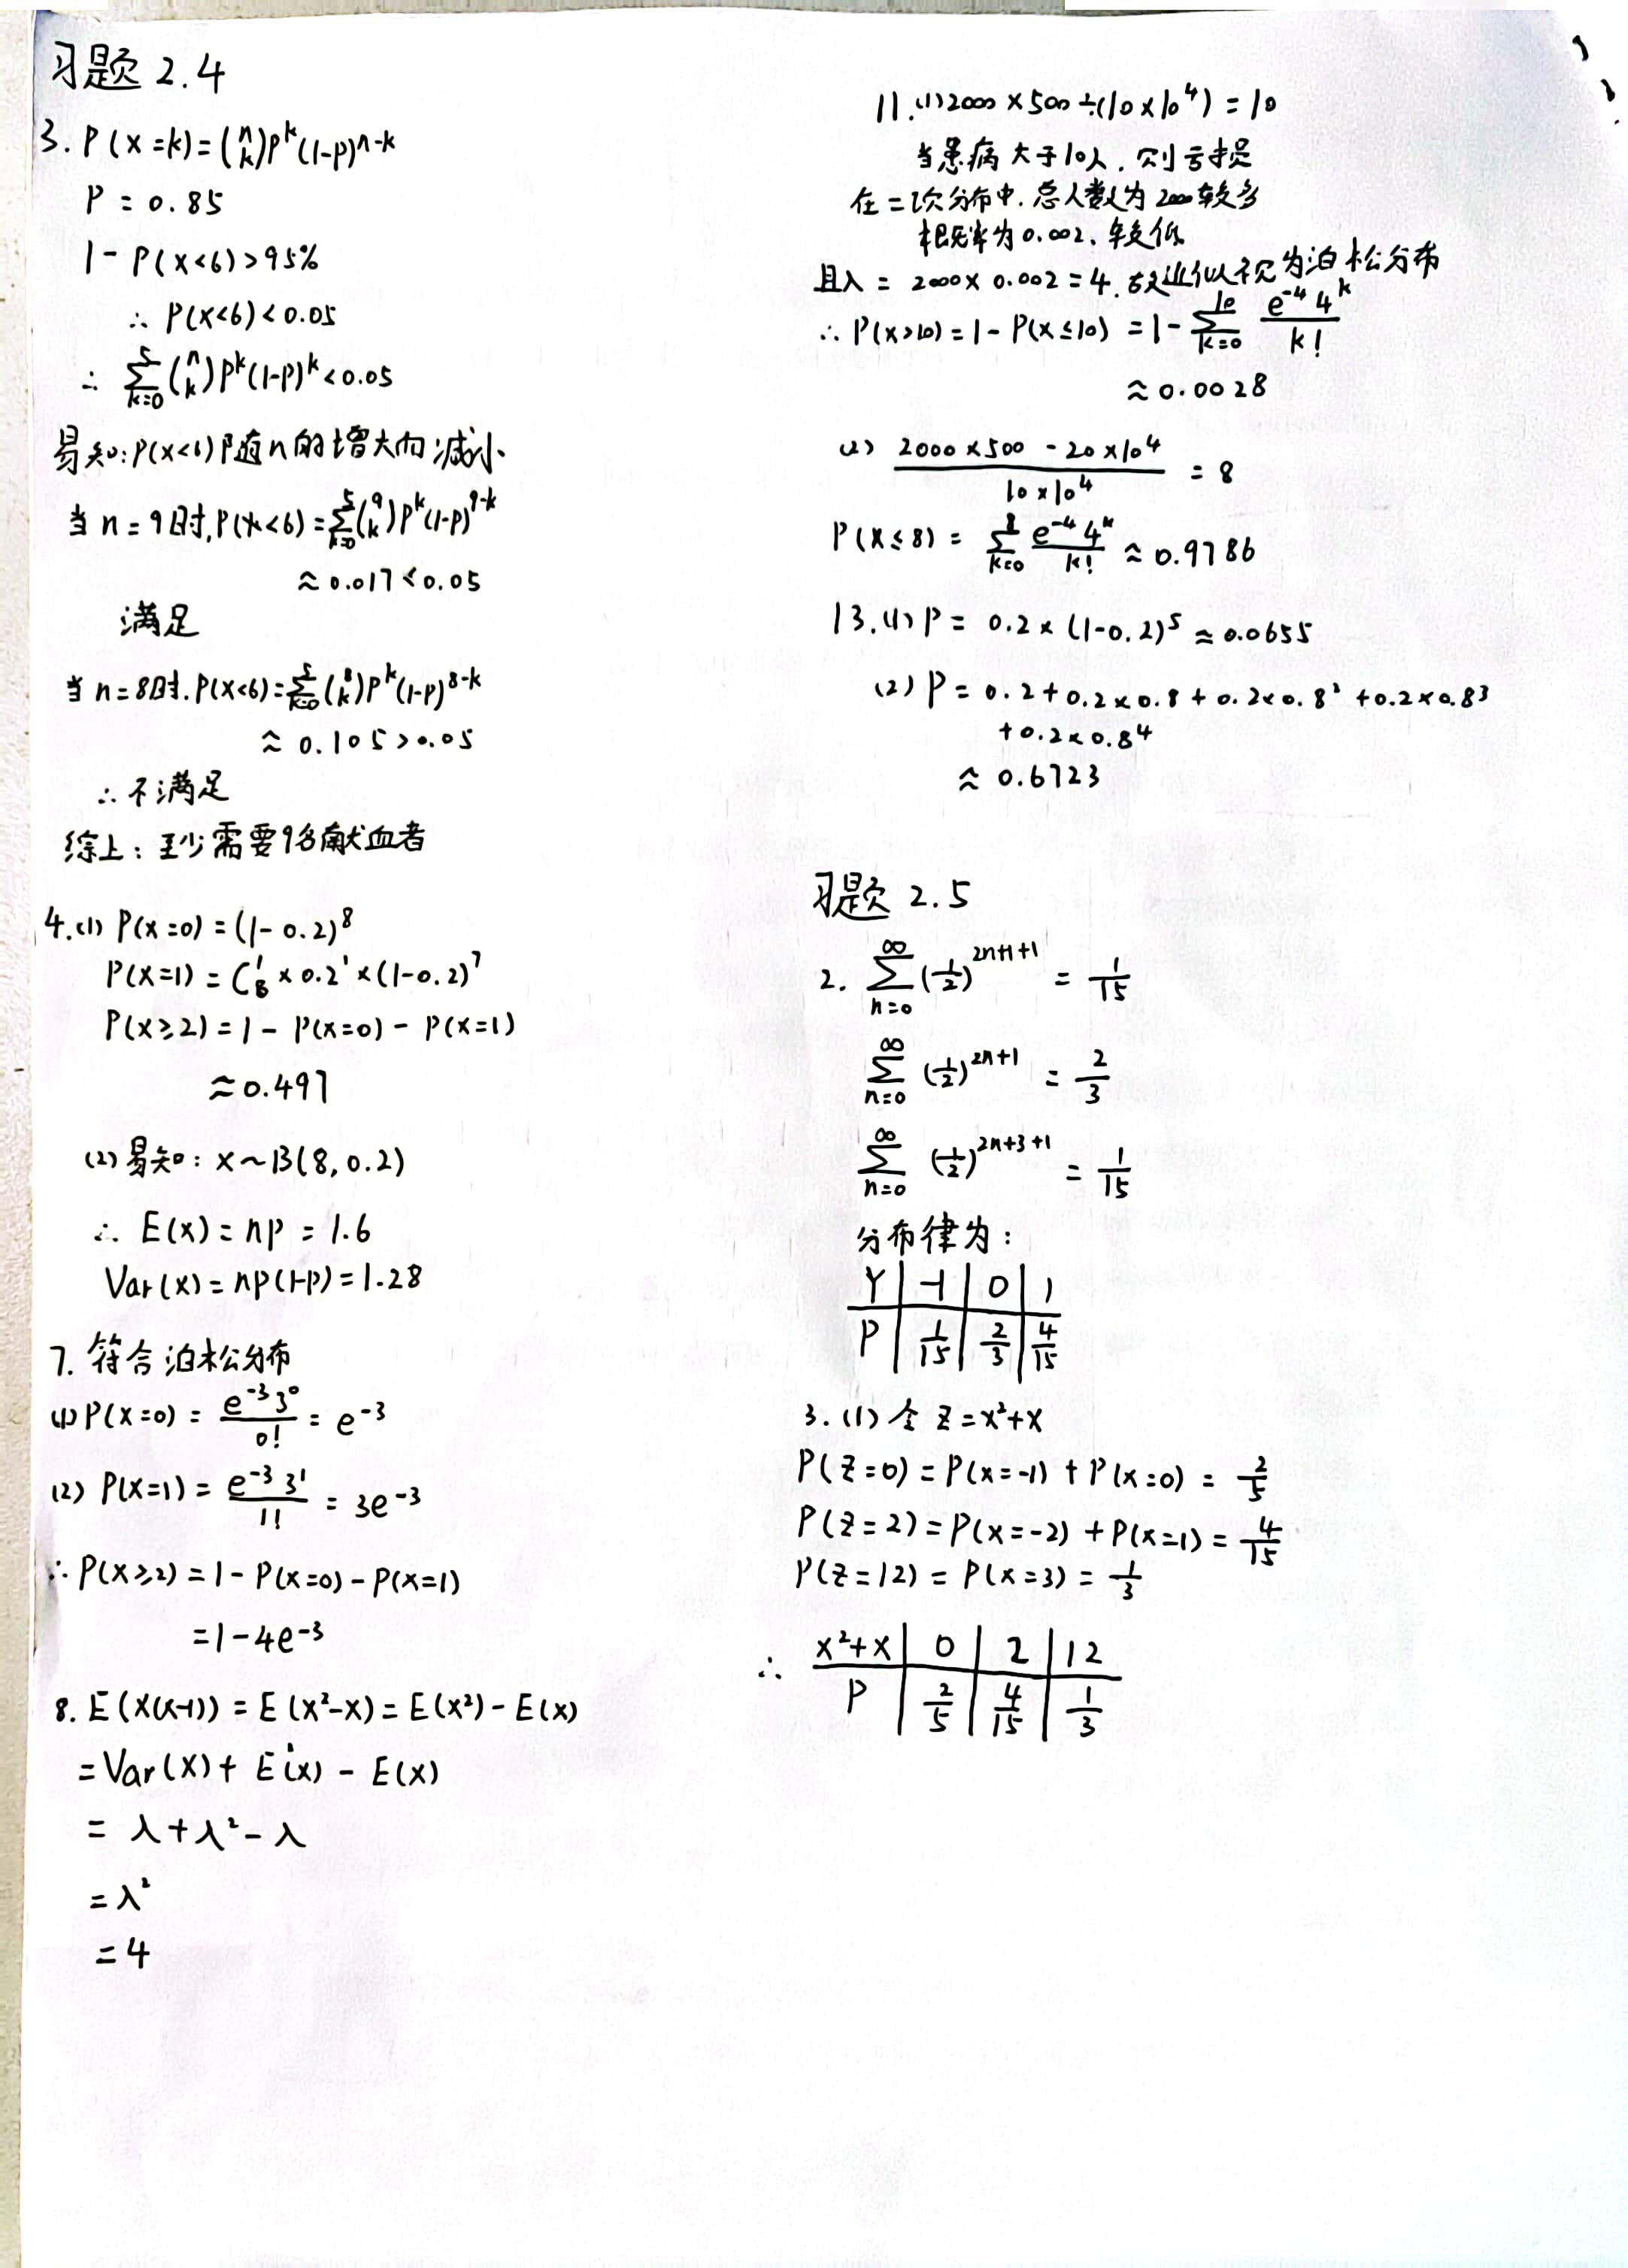 习题 2.4
3. P(X=k)=(n k)p^k(1-p)^{n-k}
P = 0.85
1-P(X<6)>95%
∴ P(X<6)<0.05
∴ ∑_{k=0}^{5}(n k)p^k(1-p)^k<0.05
易知:P(X<6)随n的增大而减小
当n=9时,P(X<6)=∑_{k=0}^{5}(9 k)p^k(1-p)^{9-k}
≈0.017<0.05
满足
当n=8时.P(X<6)=∑_{k=0}^{5}(8 k)p^k(1-p)^{8-k}
≈0.105>0.05
∴不满足
综上:至少需要9名献血者
4.(1) P(X=0)=(1-0.2)^8
P(X=1)=C_8^1×0.2^1×(1-0.2)^7
P(X≥2)=1-P(X=0)-P(X=1)
≈0.497
(2)易知:X~B(8,0.2)
∴ E(X)=np=1.6
Var(X)=np(1-p)=1.28
7. 符合泊松分布
(1)P(X=0)=\frac{e^{-3}3^0}{0!}=e^{-3}
(2) P(X=1)=\frac{e^{-3}3^1}{1!}=3e^{-3}
∴P(X≥2)=1-P(X=0)-P(X=1)
=1-4e^{-3}
8. E(X(X-1))=E(X²-X)=E(X²)-E(X)
=Var(X)+E²(X)-E(X)
=λ+λ²-λ
=λ²
=4
11.(1)2000×500÷(10×10^4)=10
当患病大于10人,则亏损
在二次分布中.总人数为2000较多
概率为0.002、较低
且λ=2000×0.002=4.故近似视为泊松分布
∴P(X>10)=1-P(X≤10)=1-∑_{k=0}^{10}\frac{e^{-4}4^k}{k!}
≈0.0028
(2) \frac{2000×500-20×10^4}{10×10^4}=8
P(X≤8)=∑_{k=0}^{8}\frac{e^{-4}4^k}{k!}≈0.9786
13.(1)P=0.2×(1-0.2)^5≈0.0655
(2)P=0.2+0.2×0.8+0.2×0.8²+0.2×0.8³
+0.2×0.8^4
≈0.6723
习题 2.5
2. ∑_{n=0}^{∞}(\frac{1}{2})^{2n+1+1}=\frac{1}{15}
∑_{n=0}^{∞}(\frac{1}{2})^{2n+1}=\frac{2}{3}
∑_{n=0}^{∞}(\frac{1}{2})^{2n+3+1}=\frac{1}{15}
分布律为:
Y -1 0 1
P \frac{1}{15} \frac{2}{3} \frac{4}{15}
3.(1)令Z=X²+X
P(Z=0)=P(X=-1)+P(X=0)=\frac{2}{5}
P(Z=2)=P(X=-2)+P(X=1)=\frac{4}{15}
P(Z=12)=P(X=3)=\frac{1}{3}
∴ X²+X 0 2 12
P \frac{2}{5} \frac{4}{15} \frac{1}{3}